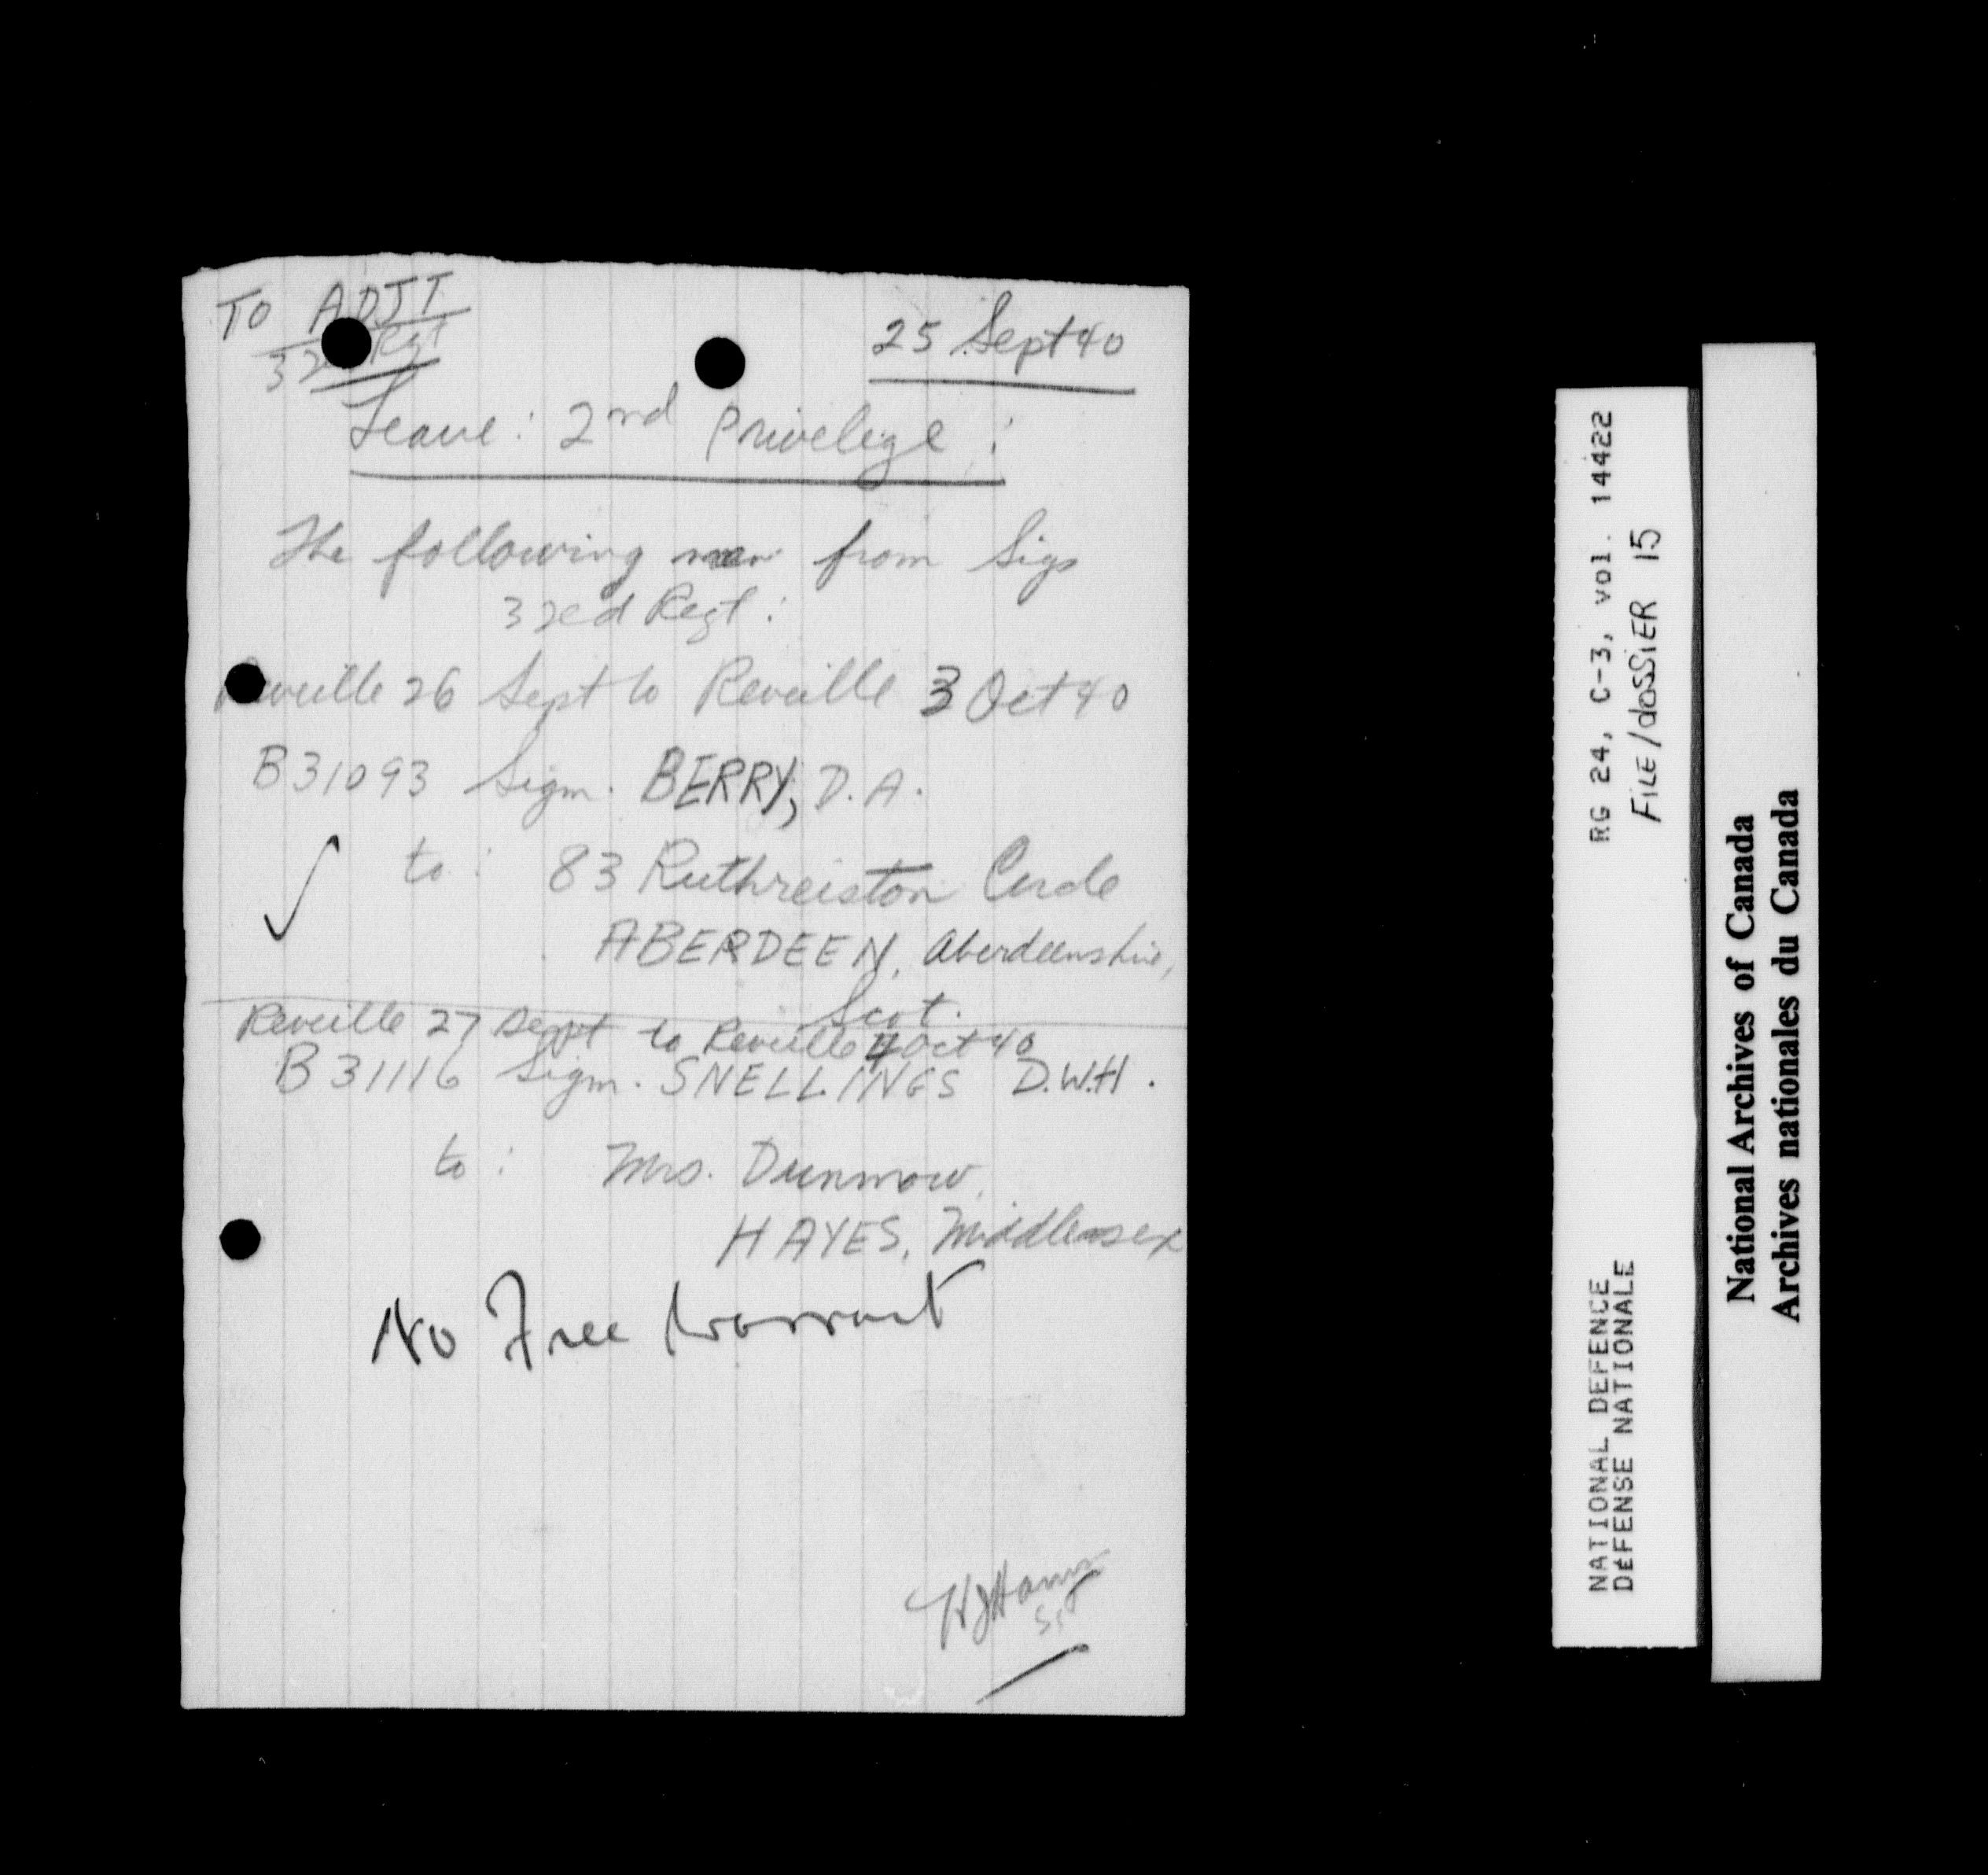 TO ADJT
32 Rgt
25 Sept 40
Leave: 2nd Privelege:
The following men from Sigs
32ed Regt:
Reveille 26 Sept to Reveille 3 Oct 40
B31093 Sigm. BERRY, D.A.
to: 83 Ruthreiston Circle
ABERDEEN, Aberdeenshire,
Scot.
Reveille 27 Sept to Reveille 4 Oct 40
B31116 Sigm. SNELLINGS D.W.H.
to: Mrs. Dunmow,
HAYES, Middlessex
No Free Warrant
RG 24, C-3, vol. 14422
FILE/dOSSiER 15
NATIONAL DEFENCE
DÉFENSE NATIONALE
National Archives of Canada
Archives nationales du Canada